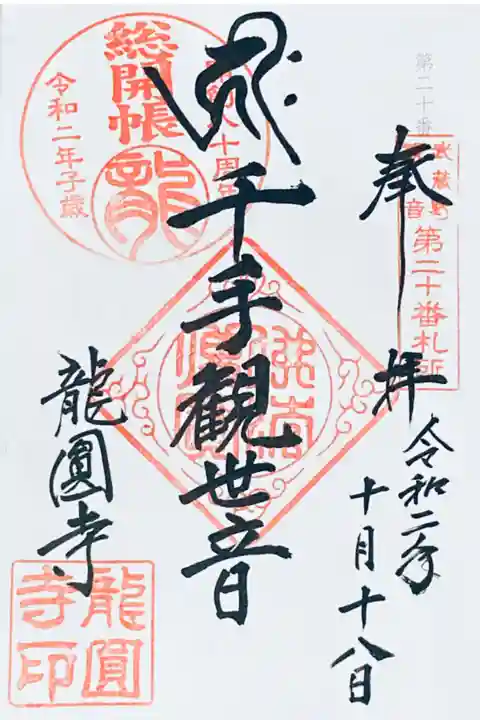 第二十番
奉拝
第二十番札所
令和二年
十月十八日
千手觀世音
総開帳
令和二年子歳
龍
龍圓寺
龍圓
寺印